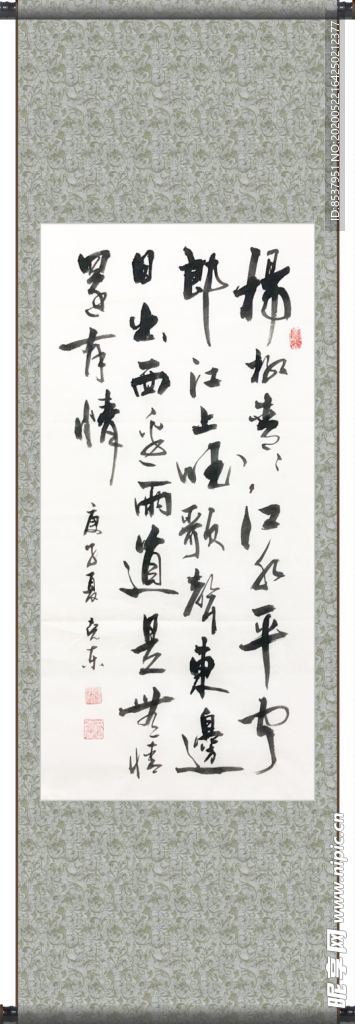 楊柳青〻江水平聞
郎江上唱歌聲東邊
日出西邊雨道是無情
還有情
庚子夏 克东
ID:8537951 NO:20200522164250212377
昵享网 www.nipic.cn